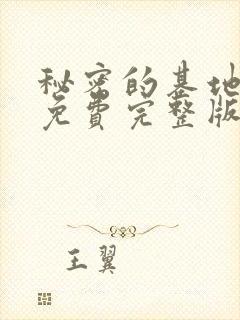 秘密的基地
免费完整版
王翼